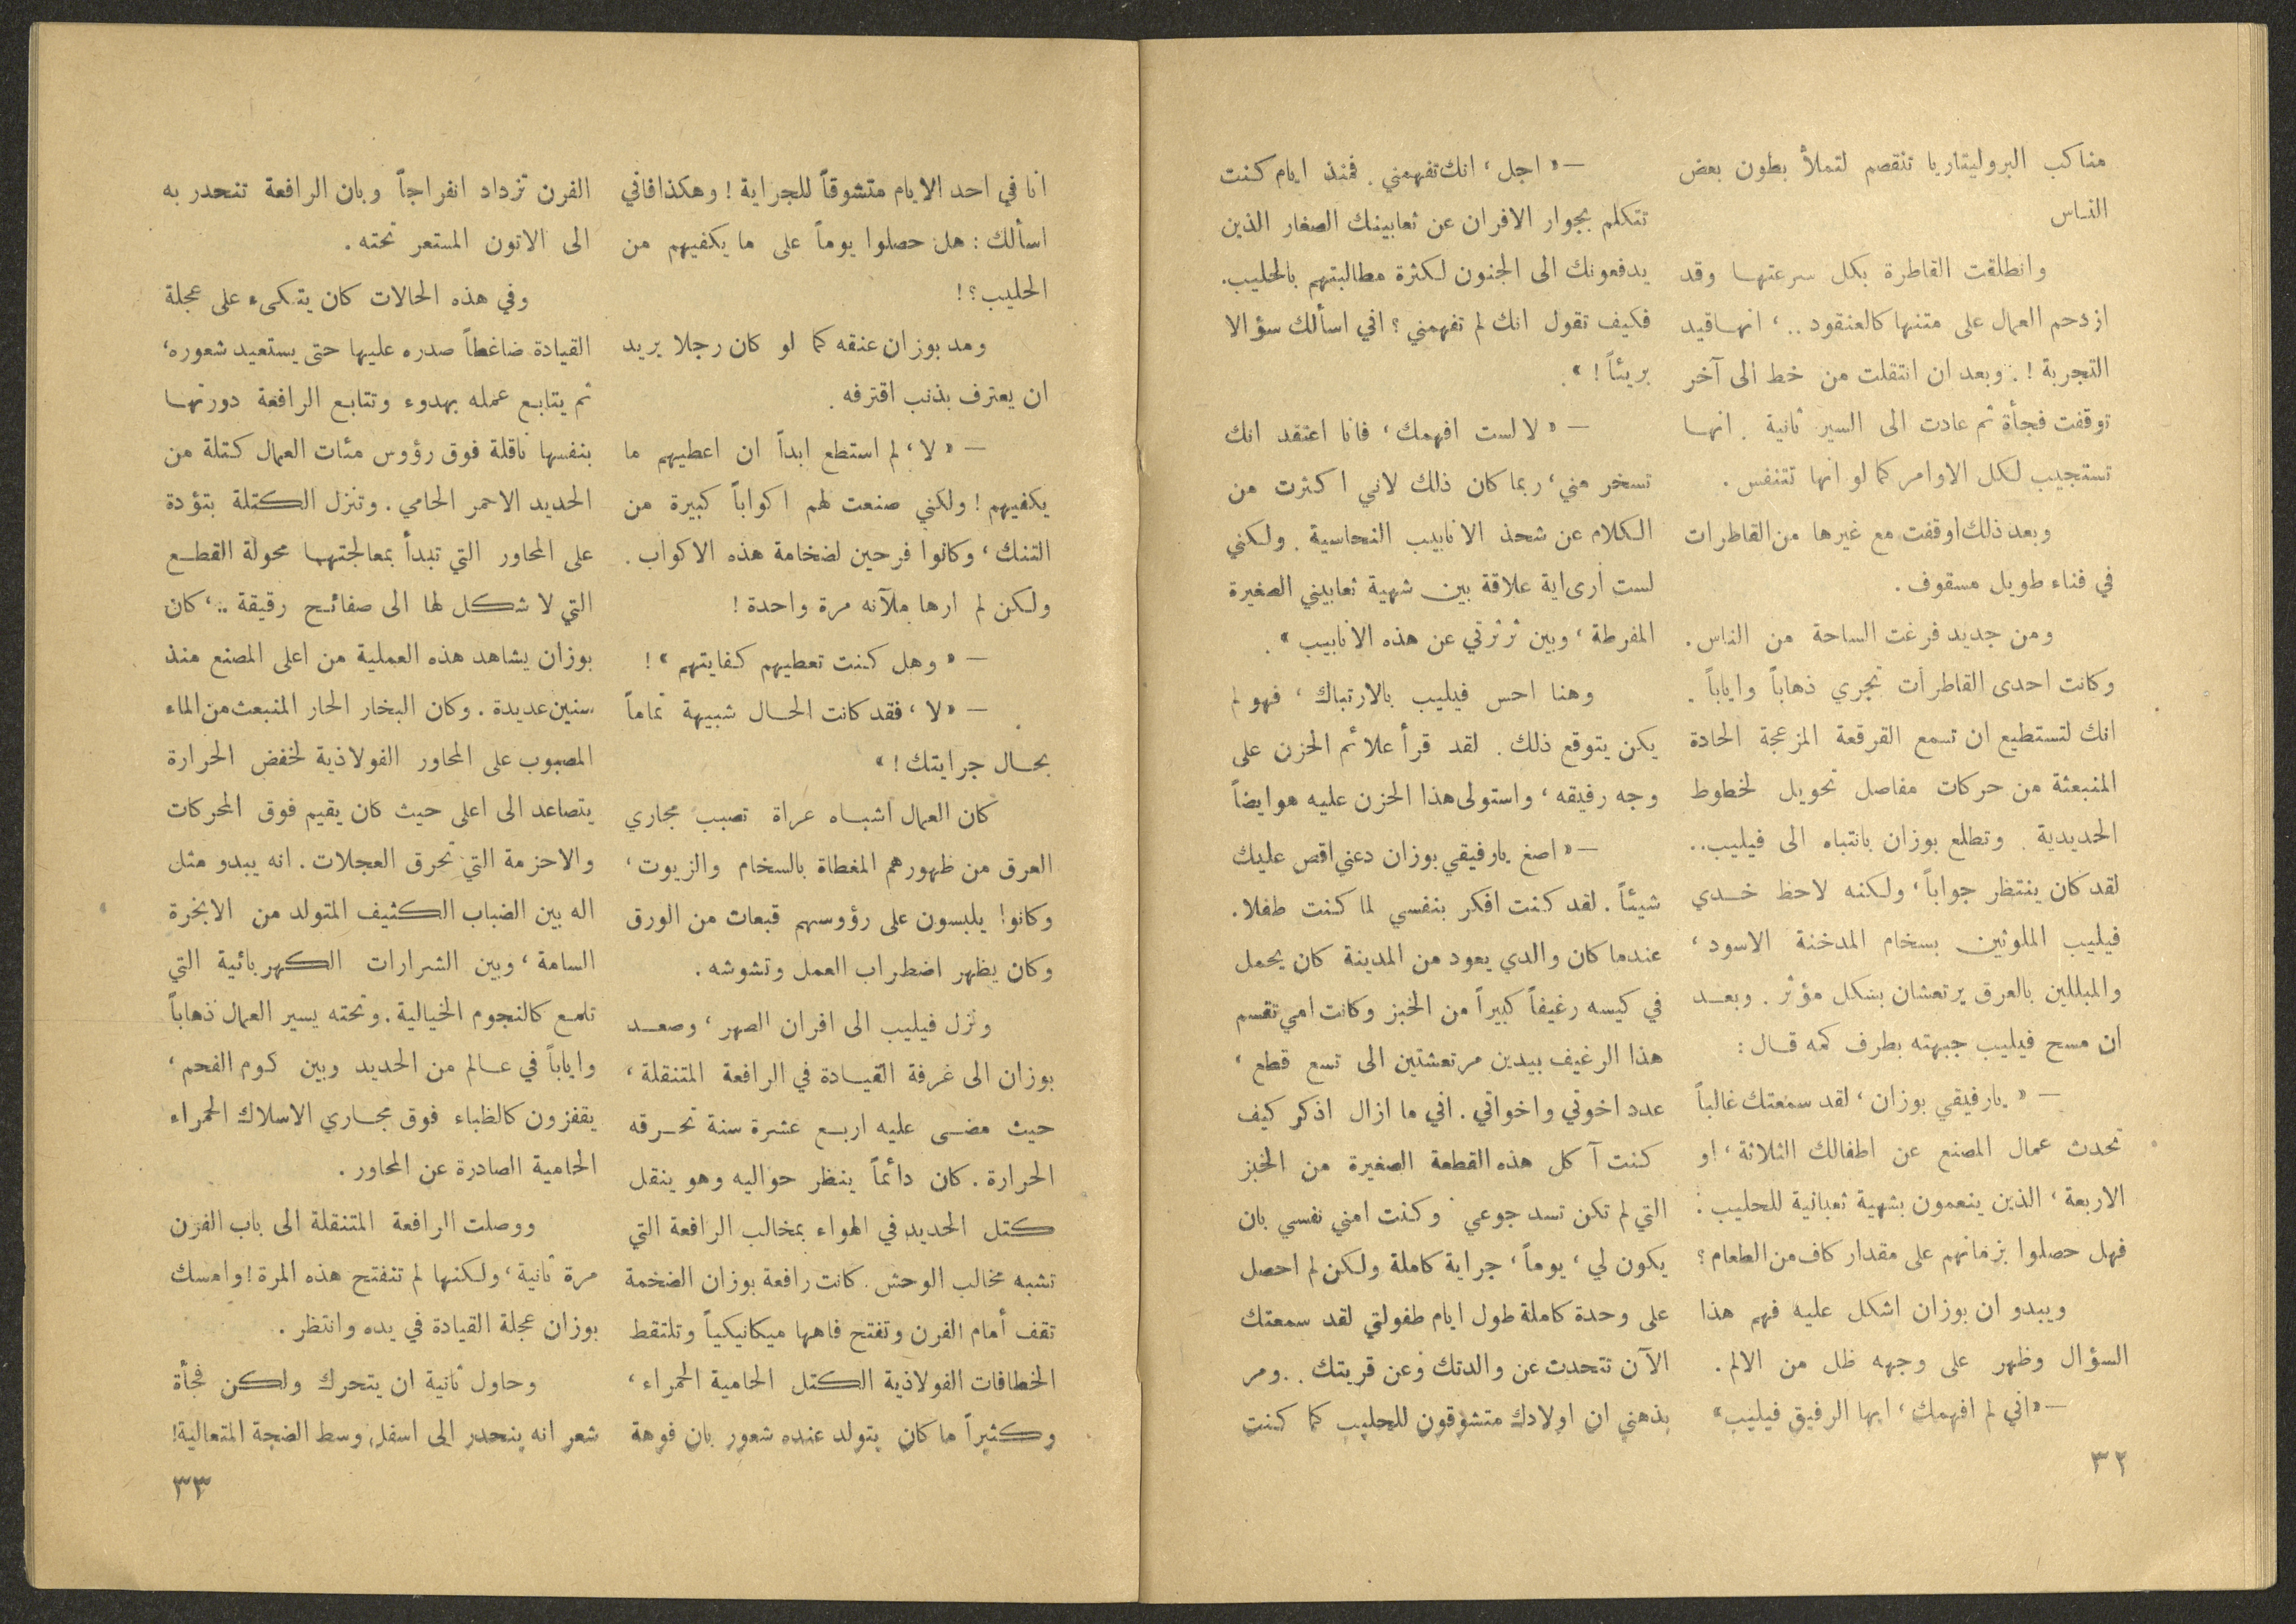 مناكب البروليتاريا تنقصم لتملأ بطون بعض
الناس
وانطلقت القاطرة بكل سرعتها وقد
ازدحم العمال على متنها كالعنقود .. ، انها قيد
التجربة ! . وبعد ان انتقلت من خط الى آخر
توقفت فجأة ثم عادت الى السير ثانية . انها
تستجيب لكل الاوامر كما لو انها تتنفس .
وبعد ذلك اوقفت مع غيرها من القاطرات
في فناء طويل مسقوف .
ومن جديد فرغت الساحة من الناس .
وكانت احدى القاطرات تجري ذهاباً واياباً .
انك لتستطيع ان تسمع القرقعة المزعجة الحادة
المنبعثة من حركات مفاصل تحويل لخطوط
الحديدية . وتطلع بوزان بانتباه الى فيليب ..
لقد كان ينتظر جواباً ، ولكنه لاحظ خدي
فيليب الملوثين بسخام المدخنة الاسود ،
والمبللين بالعرق يرتعشان بشكل مؤثر . وبعد
ان مسح فيليب جبهته بطرف كمه قال :
— « يارفيقي بوزان ، لقد سمعتك غالباً
تحدث عمال المصنع عن اطفالك الثلاثة ، او
الاربعة ، الذين ينعمون بشهية ثعبانية للحليب :
فهل حصلوا بزمانهم على مقدار كاف من الطعام ؟
ويبدو ان بوزان اشكل عليه فهم هذا
السؤال وظهر على وجهه ظل من الالم .
— « اني لم افهمك ، ايها الرفيق فيليب »
٣٢
— « اجل ، انك تفهمني . فمنذ ايام كنت
تتكلم بجوار الافران عن ثعابينك الصغار الذين
يدفعونك الى الجنون لكثرة مطالبتهم بالحليب .
فكيف تقول انك لم تفهمني ؟ اني اسألك سؤالا
بريئاً ! » .
— « لا لست افهمك ، فانا اعتقد انك
تسخر مني ، ربما كان ذلك لاني اكثرت من
الكلام عن شحذ الانابيب النحاسية . ولكني
لست ارى اية علاقة بين شهية ثعابيني الصغيرة
المفرطة ، وبين ثرثرتي عن هذه الانابيب » .
وهنا احس فيليب بالارتباك ، فهو لم
يكن يتوقع ذلك . لقد قرأ علائم الحزن على
وجه رفيقه ، واستولى هذا الحزن عليه هو ايضاً
— « اصغ يارفيقي بوزان دعني اقص عليك
شيئاً . لقد كنت افكر بنفسي لما كنت طفلا .
عندما كان والدي يعود من المدينة كان يحمل
في كيسه رغيفاً كبيراً من الخبز وكانت امي تقسم
هذا الرغيف بيدين مرتعشتين الى تسع قطع ،
عدد اخوتي واخواتي . اني ما ازال اذكر كيف
كنت آكل هذه القطعة الصغيرة من الخبز
التي لم تكن تسد جوعي وكنت امني نفسي بان
يكون لي ، يوماً ، جراية كاملة ولكن لم احصل
على وحدة كاملة طول ايام طفولتي لقد سمعتك
الآن تتحدث عن والدتك وعن قريتك .. ومر
بذهني ان اولادك متشوقون للحليب كما كنت
انا في احد الايام متشوقاً للجراية ! وهكذا فاني
اسألك : هل حصلوا يوماً على ما يكفيهم من
الحليب ؟ !
ومد بوزان عنقه كما لو كان رجلا يريد
ان يعترف بذنب اقترفه .
— « لا ، لم استطع ابداً ان اعطيهم ما
يكفيهم ! ولكني صنعت لهم اكواباً كبيرة من
التنك ، وكانوا فرحين لضخامة هذه الاكواب .
ولكن لم ارها ملآنه مرة واحدة !
— « وهل كنت تعطيهم كفايتهم » !
— « لا ، فقد كانت الحال شبيهة تماماً
بحال جرايتك ! »
كان العمال اشباه عراة تصبب مجاري
العرق من ظهورهم المغطاة بالسخام والزيوت ،
وكانوا يلبسون على رؤوسهم قبعات من الورق
وكان يظهر اضطراب العمل وتشوشه .
ونزل فيليب الى افران الصهر ، وصعد
بوزان الى غرفة القيادة في الرافعة المتنقلة ،
حيث مضى عليه اربع عشرة سنة تحرقه
الحرارة . كان دائماً ينظر حواليه وهو ينقل
كتل الحديد في الهواء بمخالب الرافعة التي
تشبه مخالب الوحش . كانت رافعة بوزان الضخمة
تقف أمام الفرن وتفتح فاهها ميكانيكياً وتلتقط
الخطافات الفولاذية الكتل الحامية الحمراء ،
وكثيراً ما كان يتولد عنده شعور بان فوهة
الفرن تزداد انفراجاً وبان الرافعة تنحدر به
الى الاتون المستعر تحته .
وفي هذه الحالات كان يتكىء على عجلة
القيادة ضاغطاً صدره عليها حتى يستعيد شعوره ،
ثم يتابع عمله بهدوء وتتابع الرافعة دورتها
بنفسها ناقلة فوق رؤوس مئات العمال كتلة من
الحديد الاحمر الحامي . وتنزل الكتلة بتؤدة
على المحاور التي تبدأ بمعالجتها محولة القطع
التي لا شكل لها الى صفائح رقيقة .. ، كان
بوزان يشاهد هذه العملية من اعلى المصنع منذ
سنين عديدة . وكان البخار الحار المنبعث من الماء
المصبوب على المحاور الفولاذية لخفض الحرارة
يتصاعد الى اعلى حيث كان يقيم فوق المحركات
والاحزمة التي تحرق العجلات . انه يبدو مثل
اله بين الضباب الكثيف المتولد من الابخرة
السامة ، وبين الشرارات الكهربائية التي
تلمع كالنجوم الخيالية . وتحته يسير العمال ذهاباً
واياباً في عالم من الحديد وبين كوم الفحم ،
يقفزون كالظباء فوق مجاري الاسلاك الحمراء
الحامية الصادرة عن المحاور .
ووصلت الرافعة المتنقلة الى باب الفرن
مرة ثانية ، ولكنها لم تنفتح هذه المرة ! وامسك
بوزان عجلة القيادة في يده وانتظر .
وحاول ثانية ان يتحرك ولكن فجأة
شعر انه ينحدر الى اسفل وسط الضجة المتعالية !
٣٣